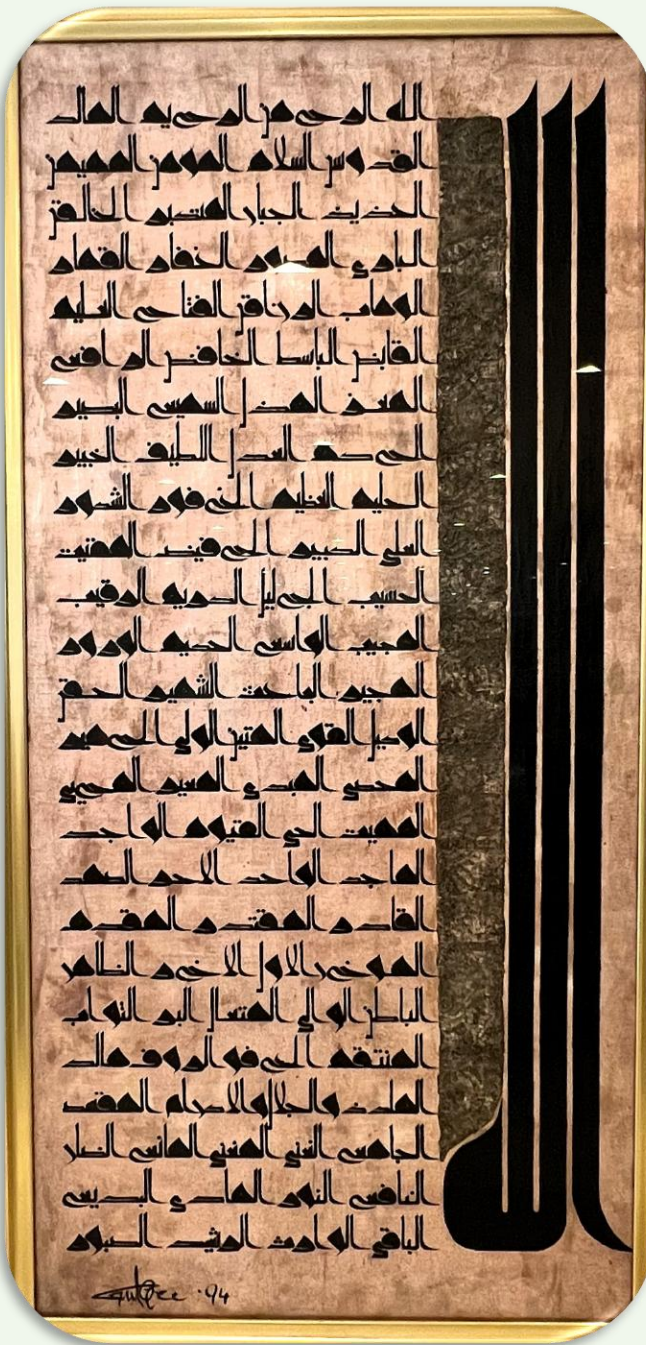 الله
الله الرحمن الرحيم الملك
القدوس السلام المؤمن المهيمن
العزيز الجبار المتكبر الخالق
البارئ المصور الغفار القهار
الوهاب الرزاق الفتاح العليم
القابض الباسط الخافض الرافع
المعز المذل السميع البصير
الحكم العدل اللطيف الخبير
الحليم العظيم الغفور الشكور
العلي الكبير الحفيظ المقيت
الحسيب الجليل الكريم الرقيب
المجيب الواسع الحكيم الودود
المجيد الباعث الشهيد الحق
الوكيل القوي المتين الولي الحميد
المحصي المبدئ المعيد المحيي
المميت الحي القيوم الواجد
الماجد الواحد الاحد الصمد
القادر المقتدر المقدم
المؤخر الاول الاخر الظاهر
الباطن الوالي المتعال البر التواب
المنتقم العفو الرؤوف مالك
الملك ذو الجلال والاكرام المقسط
الجامع الغني المغني المانع الضار
النافع النور الهادي البديع
الباقي الوارث الرشيد الصبور
94